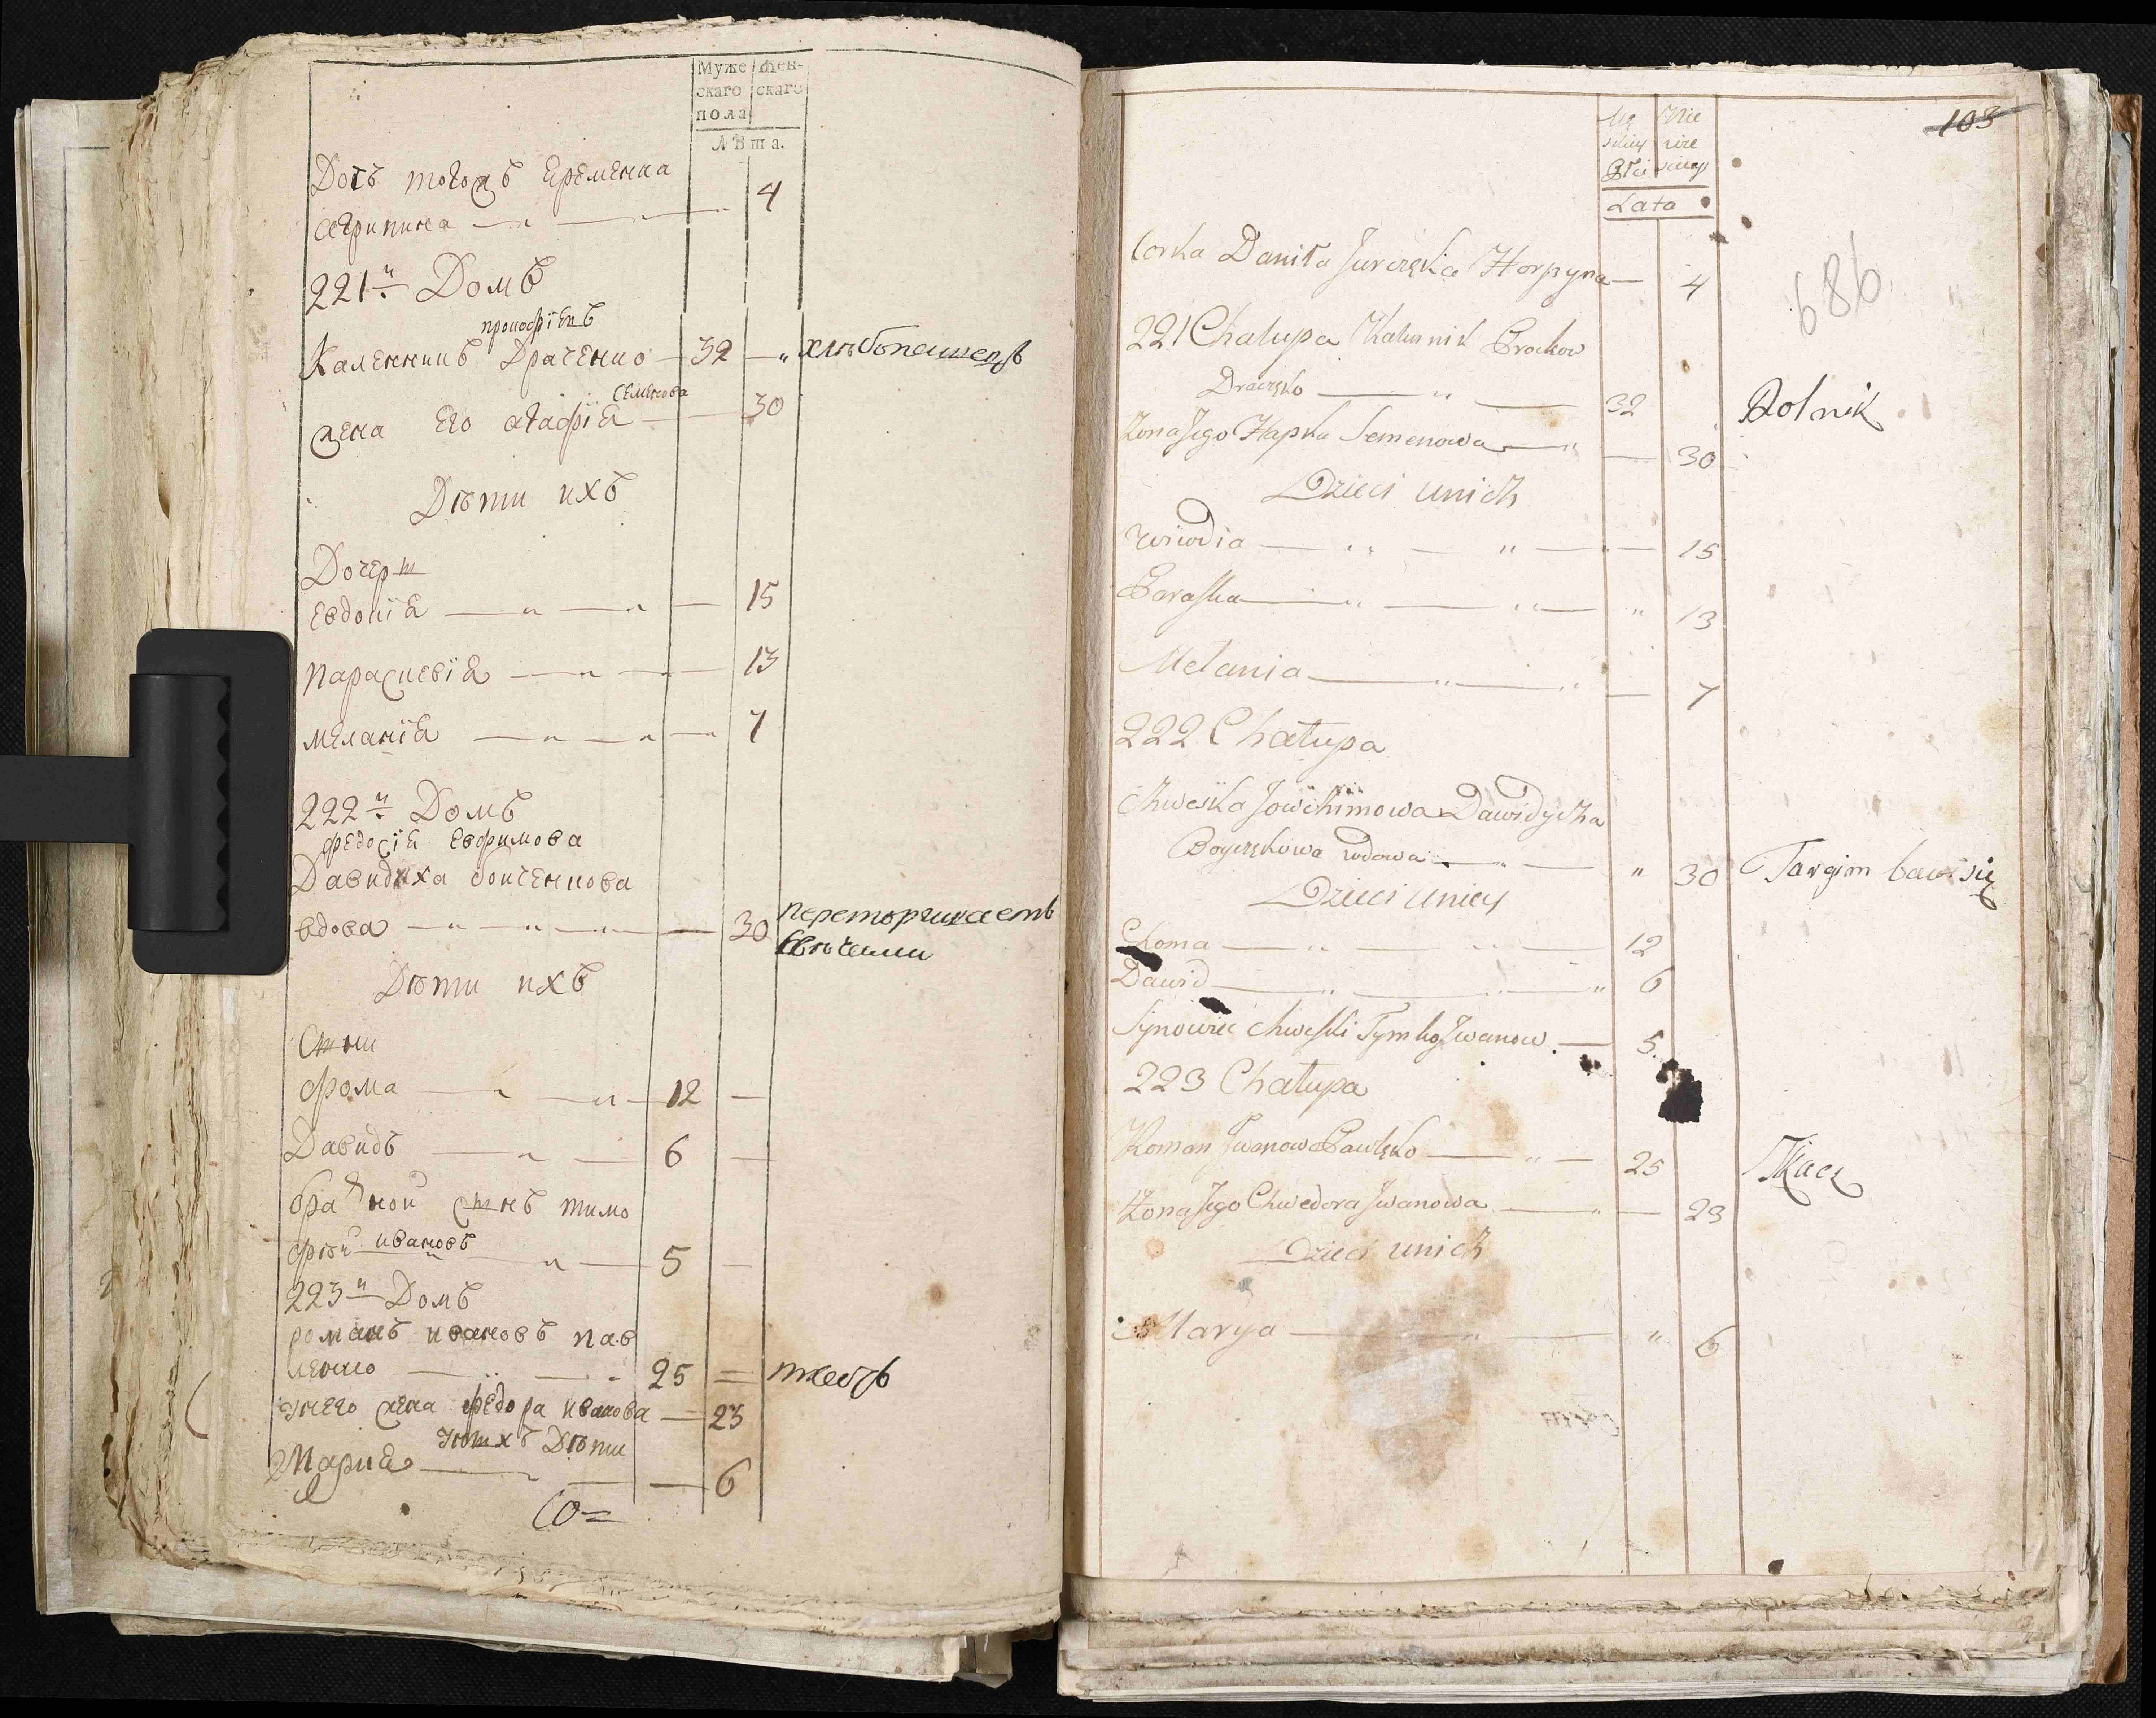 Муже
скаго
пола
Жен-
скаго
лѣта.
Дочь тогожъ Еременка
агрипина 4
221й Домъ
прокофіевъ
Каленникъ Драченко 32 хлѣбопашецъ
Семенова
жена его агафіа 30
Дѣти ихъ
Дочери
Евдокіа 15
Параскевіа 13
Меланіа 7
222й Домъ
федосіа Евфимова
Давидиха бойченкова
вдова 30 переторгиваетъ
свѣчами
Дѣти ихъ
Сыни
фома 12
Давидъ 6
братной сынъ тимо
фѣй ивановъ 5
223й Домъ
романъ ивановъ пав
ленко 25 ткачъ
унего жена федора иванова 23
унихъ Дѣти
Мариа 6
Со=
103
686.
Mę
skiey
Płci
Nie
wie
sciey
Lata
Corka Daniła Jurczęka Horpyna 4
221 Chalupa Kalinnik Prokow
Draczęko 32 Rolnik
Zona Jego Hapka Semenowa 30
Dzieci unich
Wiwdia 15
Paraska 13
Melania 7
222 Chałupa
Chweśka Jowchimowa Dawidycha
Boyczękowa wdowa 30 Targim bawi się
Dzieci uniey
Choma 12
Dawid 6
Synowiec Chweski Tymko Iwanow 5
223 Chałupa
Roman Iwanow Pawlęko 25 Tkacz
Zona Jego Chwedora Iwanowa 23
Dzieci unich
Marya 6